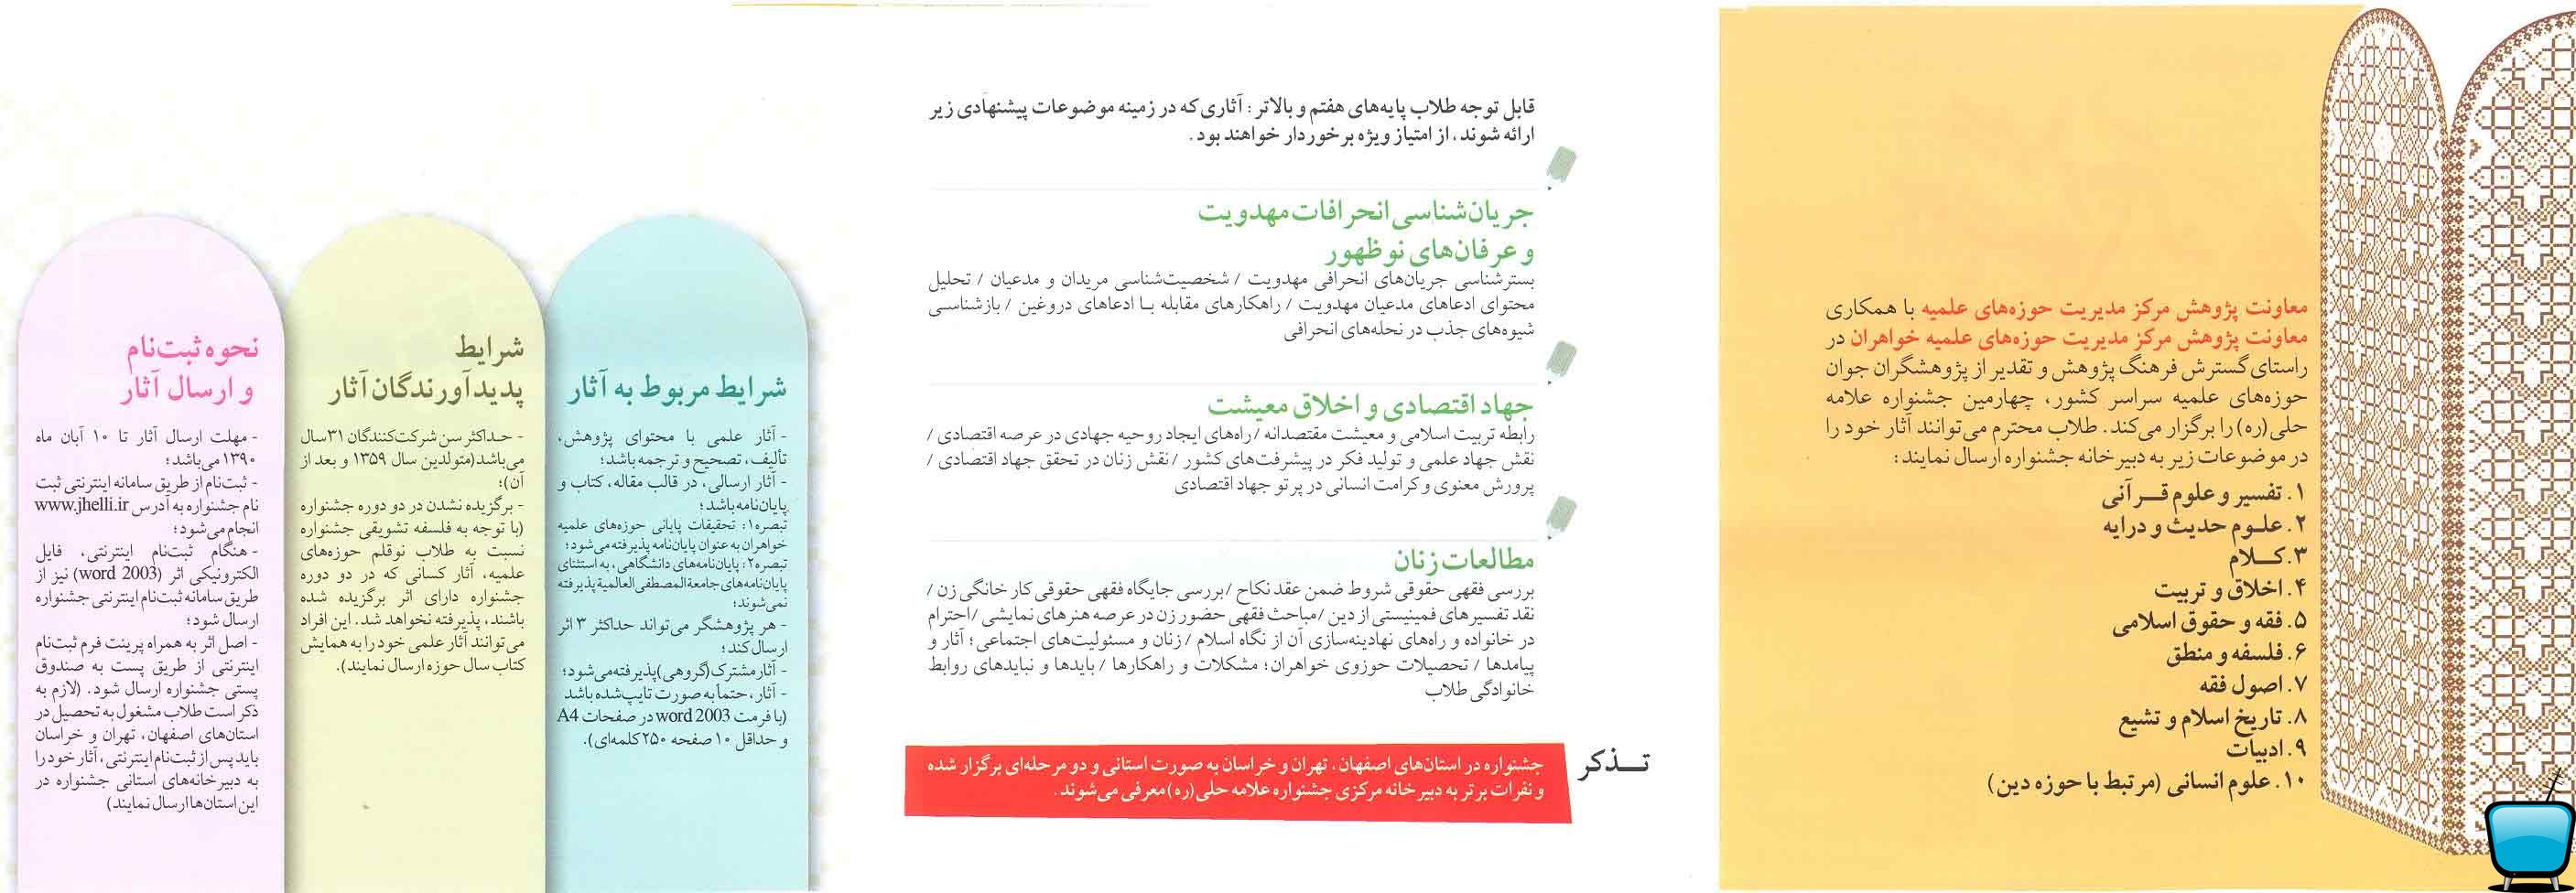 معاونت پژوهش مرکز مدیریت حوزه‌های علمیه با همکاری
معاونت پژوهش مرکز مدیریت حوزه‌های علمیه خواهران در
راستای گسترش فرهنگ پژوهش و تقدیر از پژوهشگران جوان
حوزه‌های علمیه سراسر کشور، چهارمین جشنواره علامه
حلی(ره) را برگزار می‌کند. طلاب محترم می‌توانند آثار خود را
در موضوعات زیر به دبیرخانه جشنواره ارسال نمایند:
۱. تفسیر و علوم قرآنی
۲. علوم حدیث و درایه
۳. کلام
۴. اخلاق و تربیت
۵. فقه و حقوق اسلامی
۶. فلسفه و منطق
۷. اصول فقه
۸. تاریخ اسلام و تشیع
۹. ادبیات
۱۰. علوم انسانی (مرتبط با حوزه دین)
قابل توجه طلاب پایه‌های هفتم و بالاتر : آثاری که در زمینه موضوعات پیشنهادی زیر
ارائه شوند، از امتیاز ویژه برخوردار خواهند بود.
جریان‌شناسی انحرافات مهدویت
و عرفان‌های نوظهور
بسترشناسی جریان‌های انحرافی مهدویت / شخصیت‌شناسی مریدان و مدعیان / تحلیل
محتوای ادعاهای مدعیان مهدویت / راهکارهای مقابله با ادعاهای دروغین / بازشناسی
شیوه‌های جذب در نحله‌های انحرافی
جهاد اقتصادی و اخلاق معیشت
رابطه تربیت اسلامی و معیشت مقتصدانه / راه‌های ایجاد روحیه جهادی در عرصه اقتصادی /
نقش جهاد علمی و تولید فکر در پیشرفت‌های کشور / نقش زنان در تحقق جهاد اقتصادی /
پرورش معنوی و کرامت انسانی در پرتو جهاد اقتصادی
مطالعات زنان
بررسی فقهی حقوقی شروط ضمن عقد نکاح / بررسی جایگاه فقهی حقوقی کار خانگی زن /
نقد تفسیرهای فمینیستی از دین / مباحث فقهی حضور زن در عرصه هنرهای نمایشی / احترام
در خانواده و راه‌های نهادینه‌سازی آن از نگاه اسلام / زنان و مسئولیت‌های اجتماعی؛ آثار و
پیامدها / تحصیلات حوزوی خواهران؛ مشکلات و راهکارها / بایدها و نبایدهای روابط
خانوادگی طلاب
تذکر
جشنواره در استان‌های اصفهان، تهران و خراسان به صورت استانی و دو مرحله‌ای برگزار شده
و نفرات برتر به دبیرخانه مرکزی جشنواره علامه حلی(ره) معرفی می‌شوند.
شرایط مربوط به آثار
- آثار علمی با محتوای پژوهش،
تألیف، تصحیح و ترجمه باشد؛
- آثار ارسالی، در قالب مقاله، کتاب و
پایان‌نامه باشد؛
تبصره۱: تحقیقات پایانی حوزه‌های علمیه
خواهران به عنوان پایان‌نامه پذیرفته می‌شود؛
تبصره۲: پایان‌نامه‌های دانشگاهی، به استثنای
پایان‌نامه‌های جامعة‌المصطفی‌العالمیة پذیرفته
نمی‌شوند؛
- هر پژوهشگر می‌تواند حداکثر ۳ اثر
ارسال کند؛
- آثار مشترک(گروهی)پذیرفته‌می‌شود؛
- آثار، حتماً به صورت تایپ‌شده باشد
(با فرمت word 2003 در صفحات A4
و حداقل ۱۰ صفحه ۲۵۰ کلمه‌ای).
شرایط
پدیدآورندگان آثار
- حداکثر سن شرکت‌کنندگان ۳۱ سال
می‌باشد(متولدین سال ۱۳۵۹ و بعد از
آن)؛
- برگزیده نشدن در دو دوره جشنواره
(با توجه به فلسفه تشویقی جشنواره
نسبت به طلاب نوقلم حوزه‌های
علمیه، آثار کسانی که در دو دوره
جشنواره دارای اثر برگزیده شده
باشند، پذیرفته نخواهد شد. این افراد
می‌توانند آثار علمی خود را به همایش
کتاب سال حوزه ارسال نمایند).
نحوه ثبت‌نام
و ارسال آثار
- مهلت ارسال آثار تا ۱۰ آبان ماه
۱۳۹۰ می‌باشد؛
- ثبت‌نام از طریق سامانه اینترنتی ثبت
نام جشنواره به آدرس www.jhelli.ir
انجام می‌شود؛
- هنگام ثبت‌نام اینترنتی، فایل
الکترونیکی اثر (word 2003) نیز از
طریق سامانه ثبت‌نام اینترنتی جشنواره
ارسال شود؛
- اصل اثر به همراه پرینت فرم ثبت‌نام
اینترنتی از طریق پست به صندوق
پستی جشنواره ارسال شود. (لازم به
ذکر است طلاب مشغول به تحصیل در
استان‌های اصفهان، تهران و خراسان
باید پس از ثبت‌نام اینترنتی، آثار خود را
به دبیرخانه‌های استانی جشنواره در
این استان‌ها ارسال نمایند)